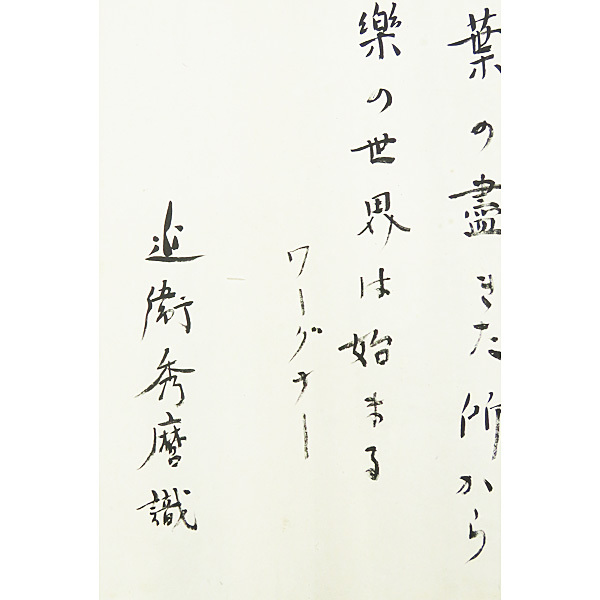 葉の盡きた所から
樂の世界は始まる
ワーグナー
近衛秀麿識